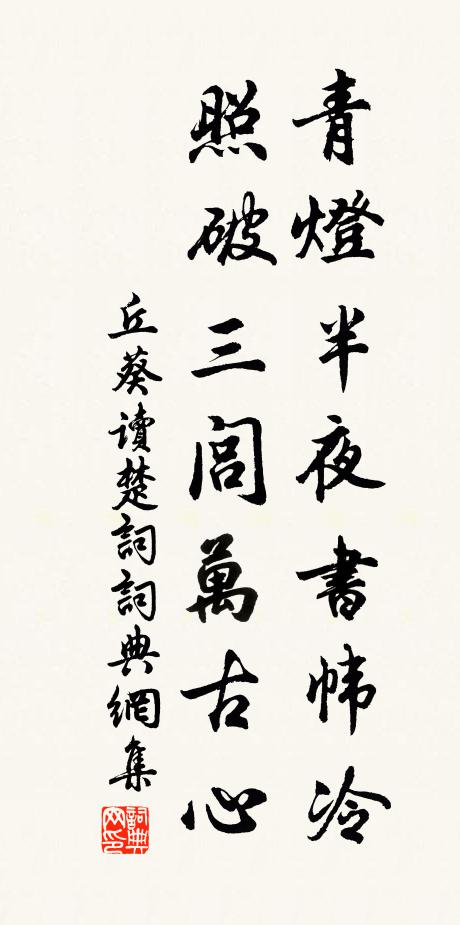 青燈半夜書幃冷
照破三閭萬古心
丘葵讀楚詞詞典網集
詞典網印